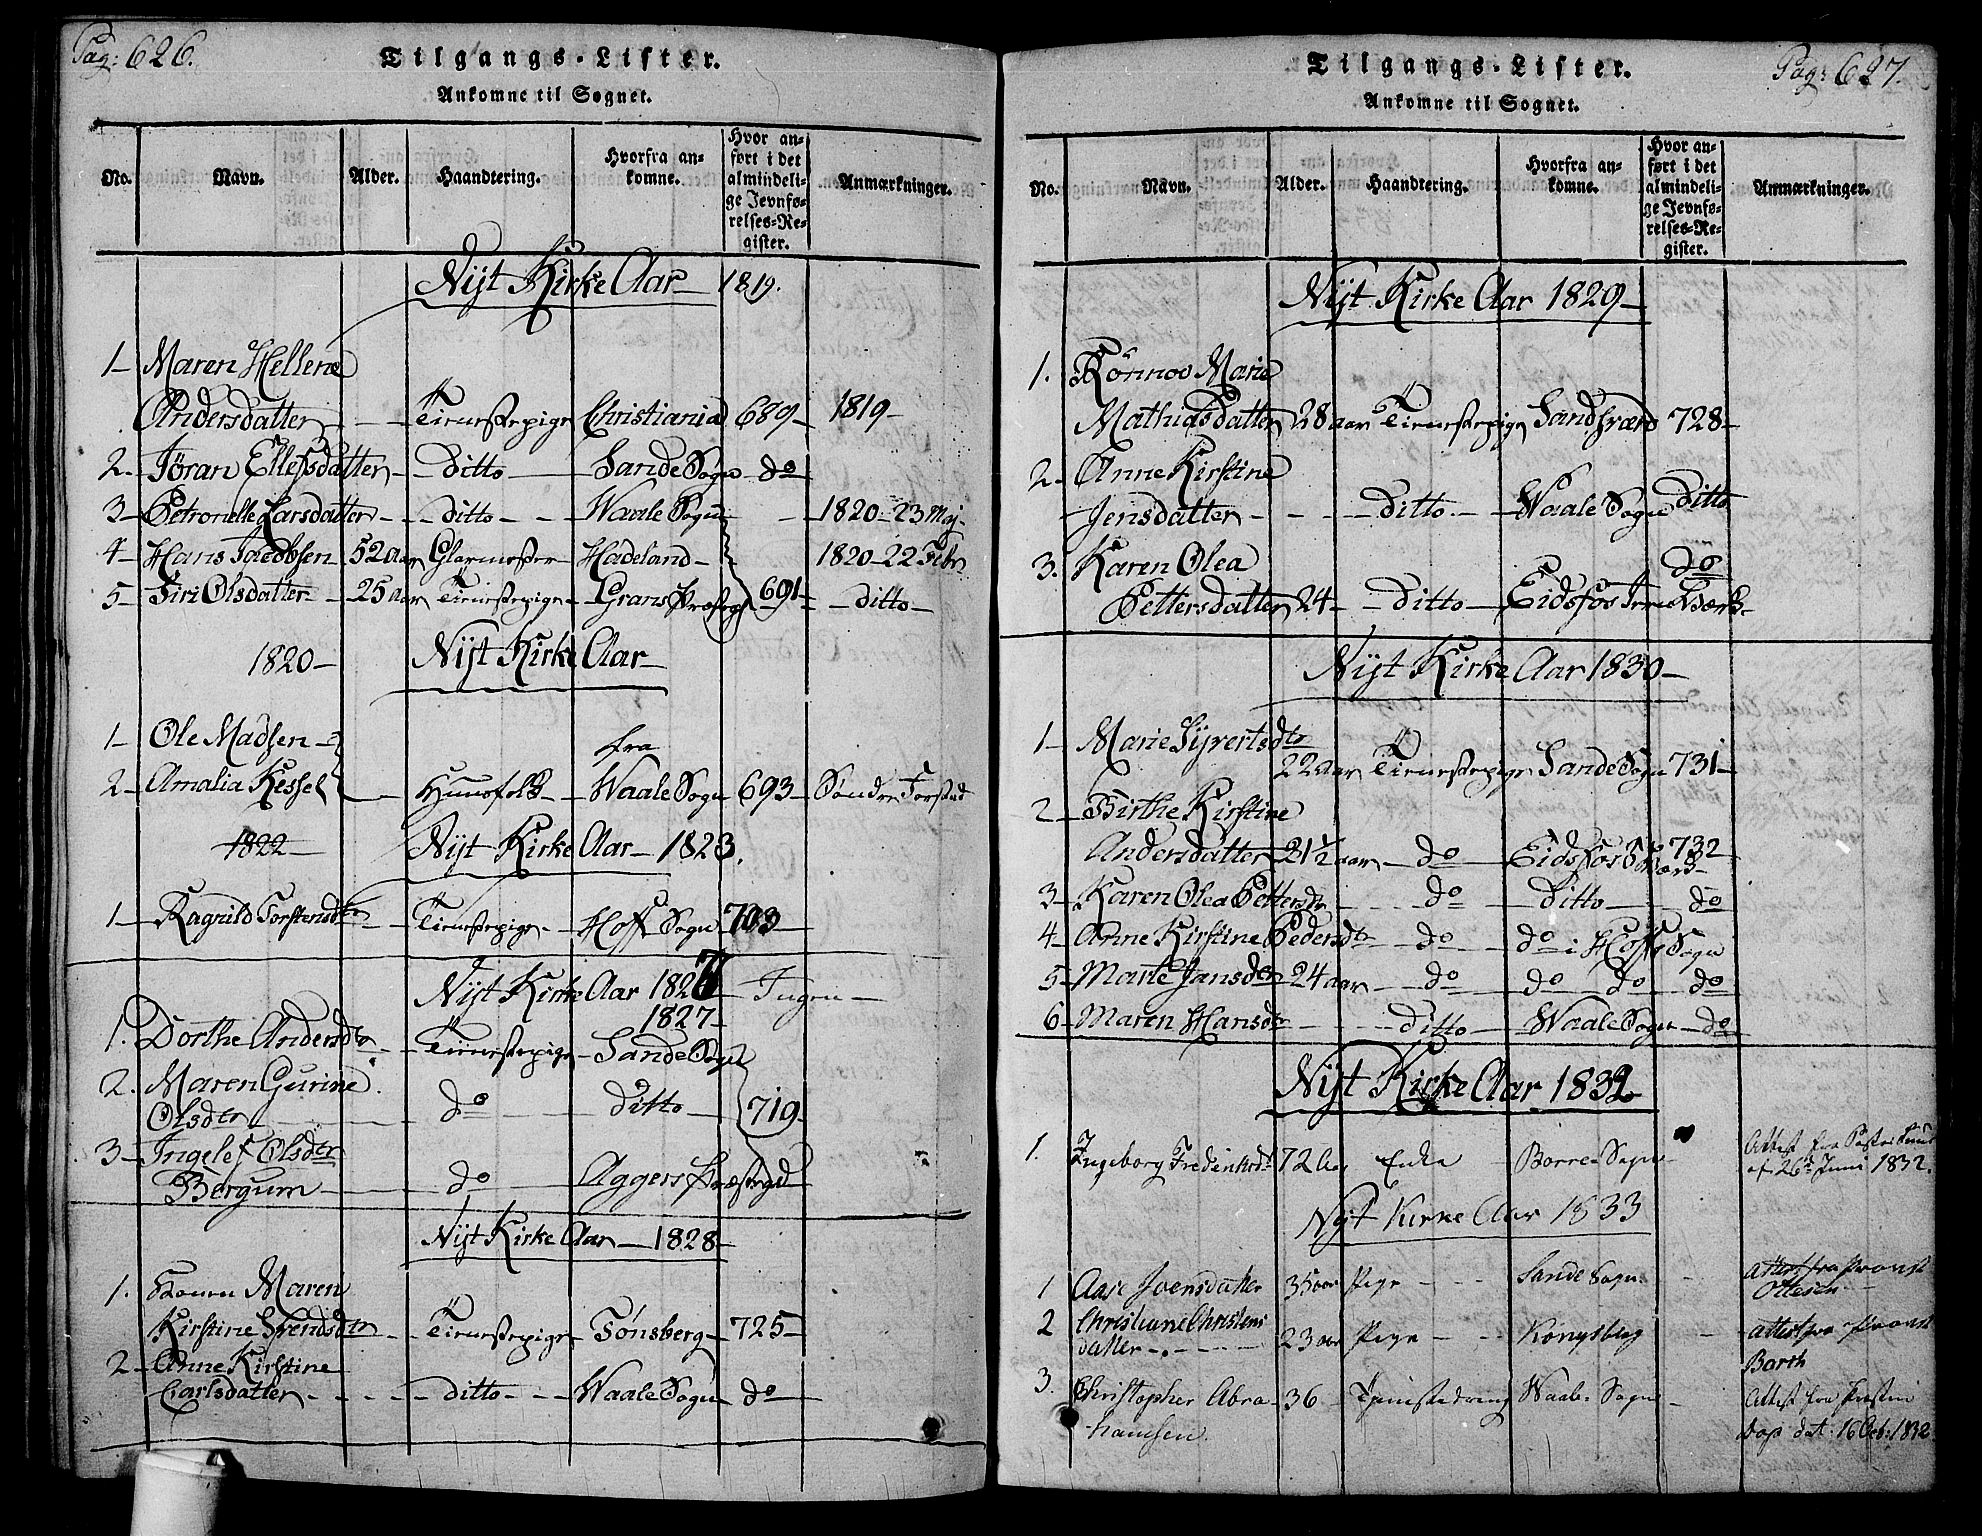 Pag: 626.
Tilgangs-Lister.
Ankomne til Sognet.
No. Navn. Alder. Haandtering. Hvorfra ankomne. Hvor anført i det almindelige Jevnførelses-Register. Anmærkninger.
Nÿt Kirke Aar 1819.
1 Maren Hellene
Andersdatter Tienestepige Christiania 689 1819
2. Jöran Ellefsdatter ditto Sande Sogn do
3 Petronelle Larsdatter ditto Waale Sogn 1820 23 Maj
4 Hans Jacobsen 52 aar Glarmester Hadeland 1820 22 Febr
5 Siri Olsdatter 25 aar Tienestepige Grans Præstegd 691 ditto
1820 Nÿt Kirke Aar
1 Ole Madsen fra
2 Amalia Kessel Huusfolk Waale Sogn 693 Søndre
1822 Nÿt Kirke Aar 1823.
1 Ragnild Torstensdtr Tienestepige Hoff Sogn 703
Nÿt Kirke Aar 1827 Ingen
1827
1. Dorthe Andersdtr Tienestepige Sande Sogn
2. Maren Gurine
Olsdtr do ditto 719
3 Ingelef Olsdtr
Bergum do Aggers Præstegd
Nÿt Kirke Aar 1828
1. Maren
Kirstine Svendsdtr Tienestepige Tønsberg 725
2 Anne Kirstine
Carlsdatter ditto Waale Sogn do
Pag: 627.
Tilgangs-Lister.
Ankomne til Sognet.
No. Navn. Alder. Haandtering. Hvorfra ankomne. Hvor anført i det almindelige Jevnførelses-Register. Anmærkninger.
Nÿt Kirke Aar 1829
1. Rönnov Marie
Mathiasdatter 28 aar Tienestepige Sandsværd 728
2. Anne Kirstine
Jensdatter ditto Waale Sogn ditto
3. Karen Olea do
Pettersdatter 24 ditto Eidsfos Jern Værk
Nÿt Kirke Aar 1830
1 Marie Sÿvertsdtr
22 aar Tienestepige Sande Sogn 731
2 Birthe Kirstine
Andersdatter 21 1/2 aar do Eidsfos Værk 732
3 Karen Olea Pettersdr do ditto do
4 Anne Kirstine Pedersdtr do do i Hoffs Sogn
5 Marte Jansdtr 24 aar do do do do
6 Maren Hansdtr ditto Waale Sogn do
Nÿt Kirke Aar 1832
1. Ingeborg Frederiksdr 72 Aar Enke Borre Sogn Attest fra Pastor
af 26d Juni 1832.
Nÿt Kirke Aar 1833
1 Aase Joensdatter 35 aar Pige Sande Sogn Attest fra Provst
Ottesen
2 Christiane Christens
datter 23 aar Pige Kongsberg Attest fra Provst
Barth
3. Christopher Abra- 36 Tjenestedreng Waale Sogn Attest fra
hamsen dat. 16 Octb: 1832